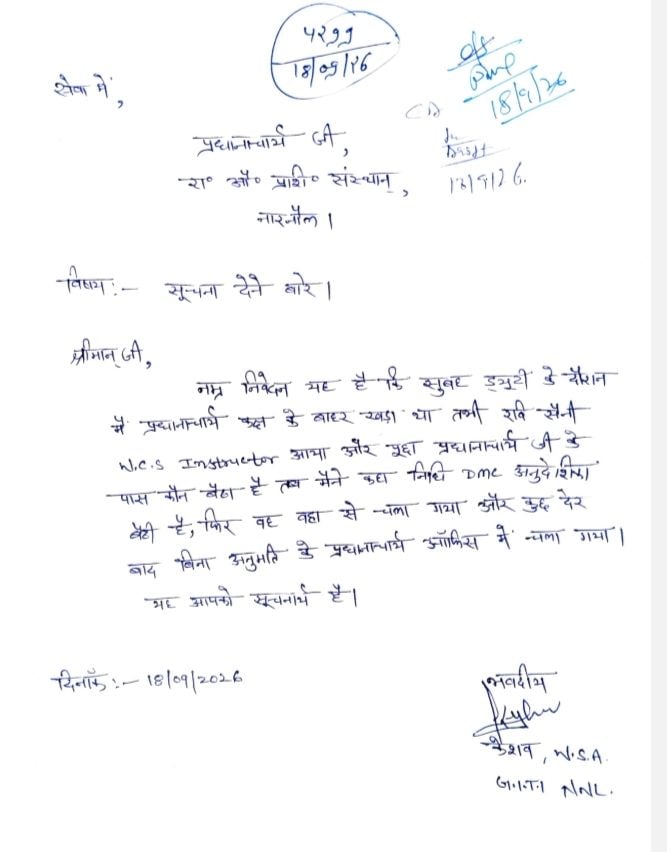 ५२११
18/09/26
18/9/26
सेवा में,
प्रधानाचार्य जी,
रा० औ० प्रशि० संस्थान,
18/9/26.
नारनौल।
विषय:- सूचना देने बारे।
श्रीमान् जी,
नम्र निवेदन यह है कि सुबह ड्यूटी के दौरान
में प्रधानाचार्य कक्ष के बाहर खडा था तभी रवि सैनी
W.C.S Instructor आया और पूछा प्रधानाचार्य जी के
पास कौन बैठा है तब मैंने कहा निधि DMC अनुदेशिका
बैठी है, फिर वह वहा से चला गया और कुछ देर
बाद बिना अनुमति के प्रधानाचार्य ऑफिस में चला गया।
यह आपको सूचनार्थ है।
दिनाँक:- 18/09/2026
भवदीय
केशव, W.S.A.
G.I.T.I NNL.